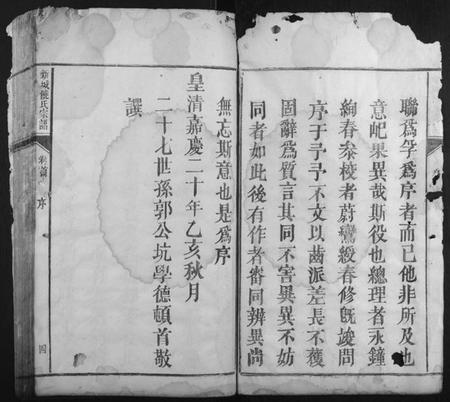 聯爲竽爲序者而已他非所及也
意屺果異哉斯役也總理者永鐘
絢春叅校者蔚鸞綬春修旣竣問
序于予予不文以齒派差長不獲
固辭爲質言其同不害異異不妨
同者如此後有作者審同辨異尚
無忘斯意也是爲序
皇清嘉慶二十年乙亥秋月
二十七世孫郭公坑學德頓首敬
譔
氏宗譜
序
四